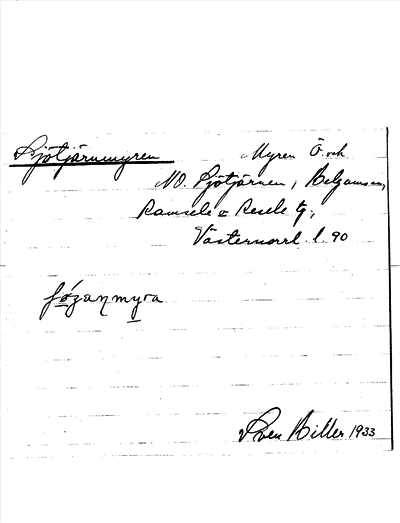 Sjötjärnmyren Myren Ö. och
NO. Sjötjärnen, Helgumsm,
Ramsele o Resele tg,
Västernorrl. l. 90
Sven Hiller 1933